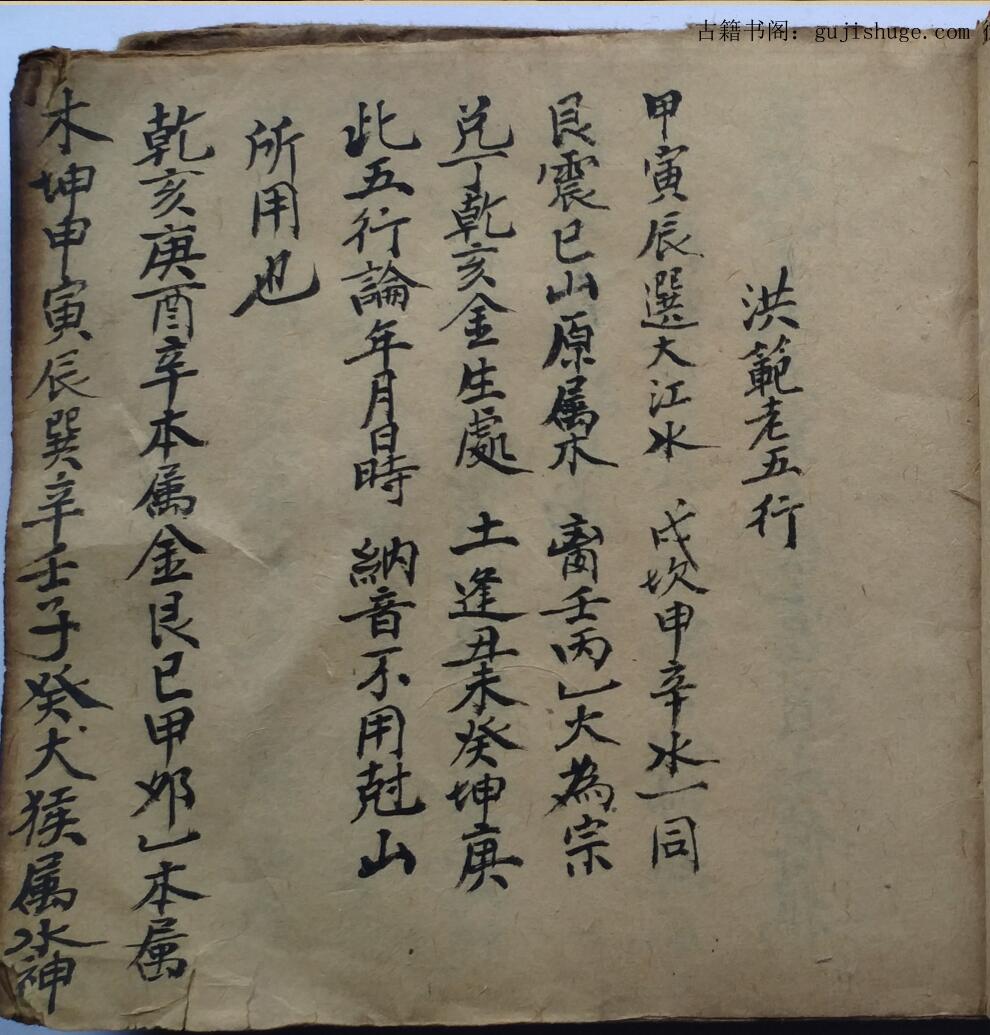 古籍书阁：gujishuge.com
洪範老五行
甲寅辰選大江水 戌坎申辛水一同
艮震巳山原属木 离壬丙乚火為宗
兌丁乾亥金生處 土逢丑未癸坤庚
此五行論年月日時 納音不用尅山
所用也
乾亥庚酉辛本属金艮巳甲卯乚本属
木坤申寅辰巽辛壬子癸犬猴属水神